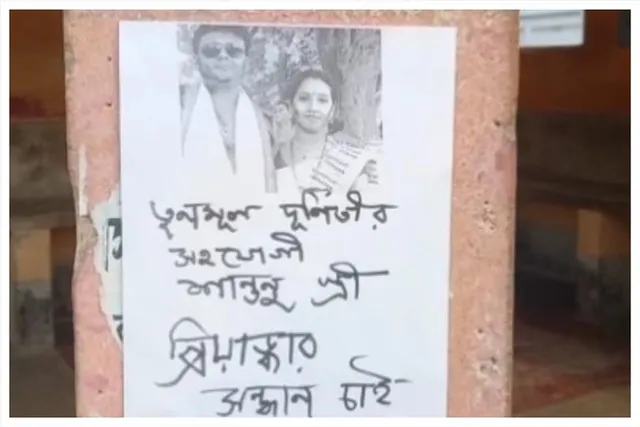 তৃনমূল দুর্নিতীর
সহযোগী
শান্তনু স্ত্রী
প্রিয়াঙ্কার
সন্ধান চাই